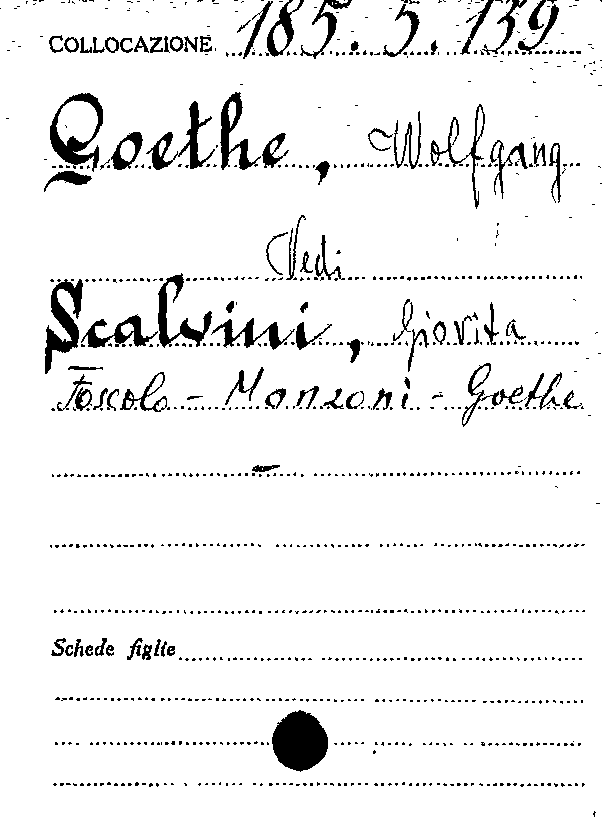 COLLOCAZIONE 185.5.139
Goethe, Wolfgang
Vedi
Scalvini, Giovita
Foscolo - Manzoni - Goethe
Schede figlie